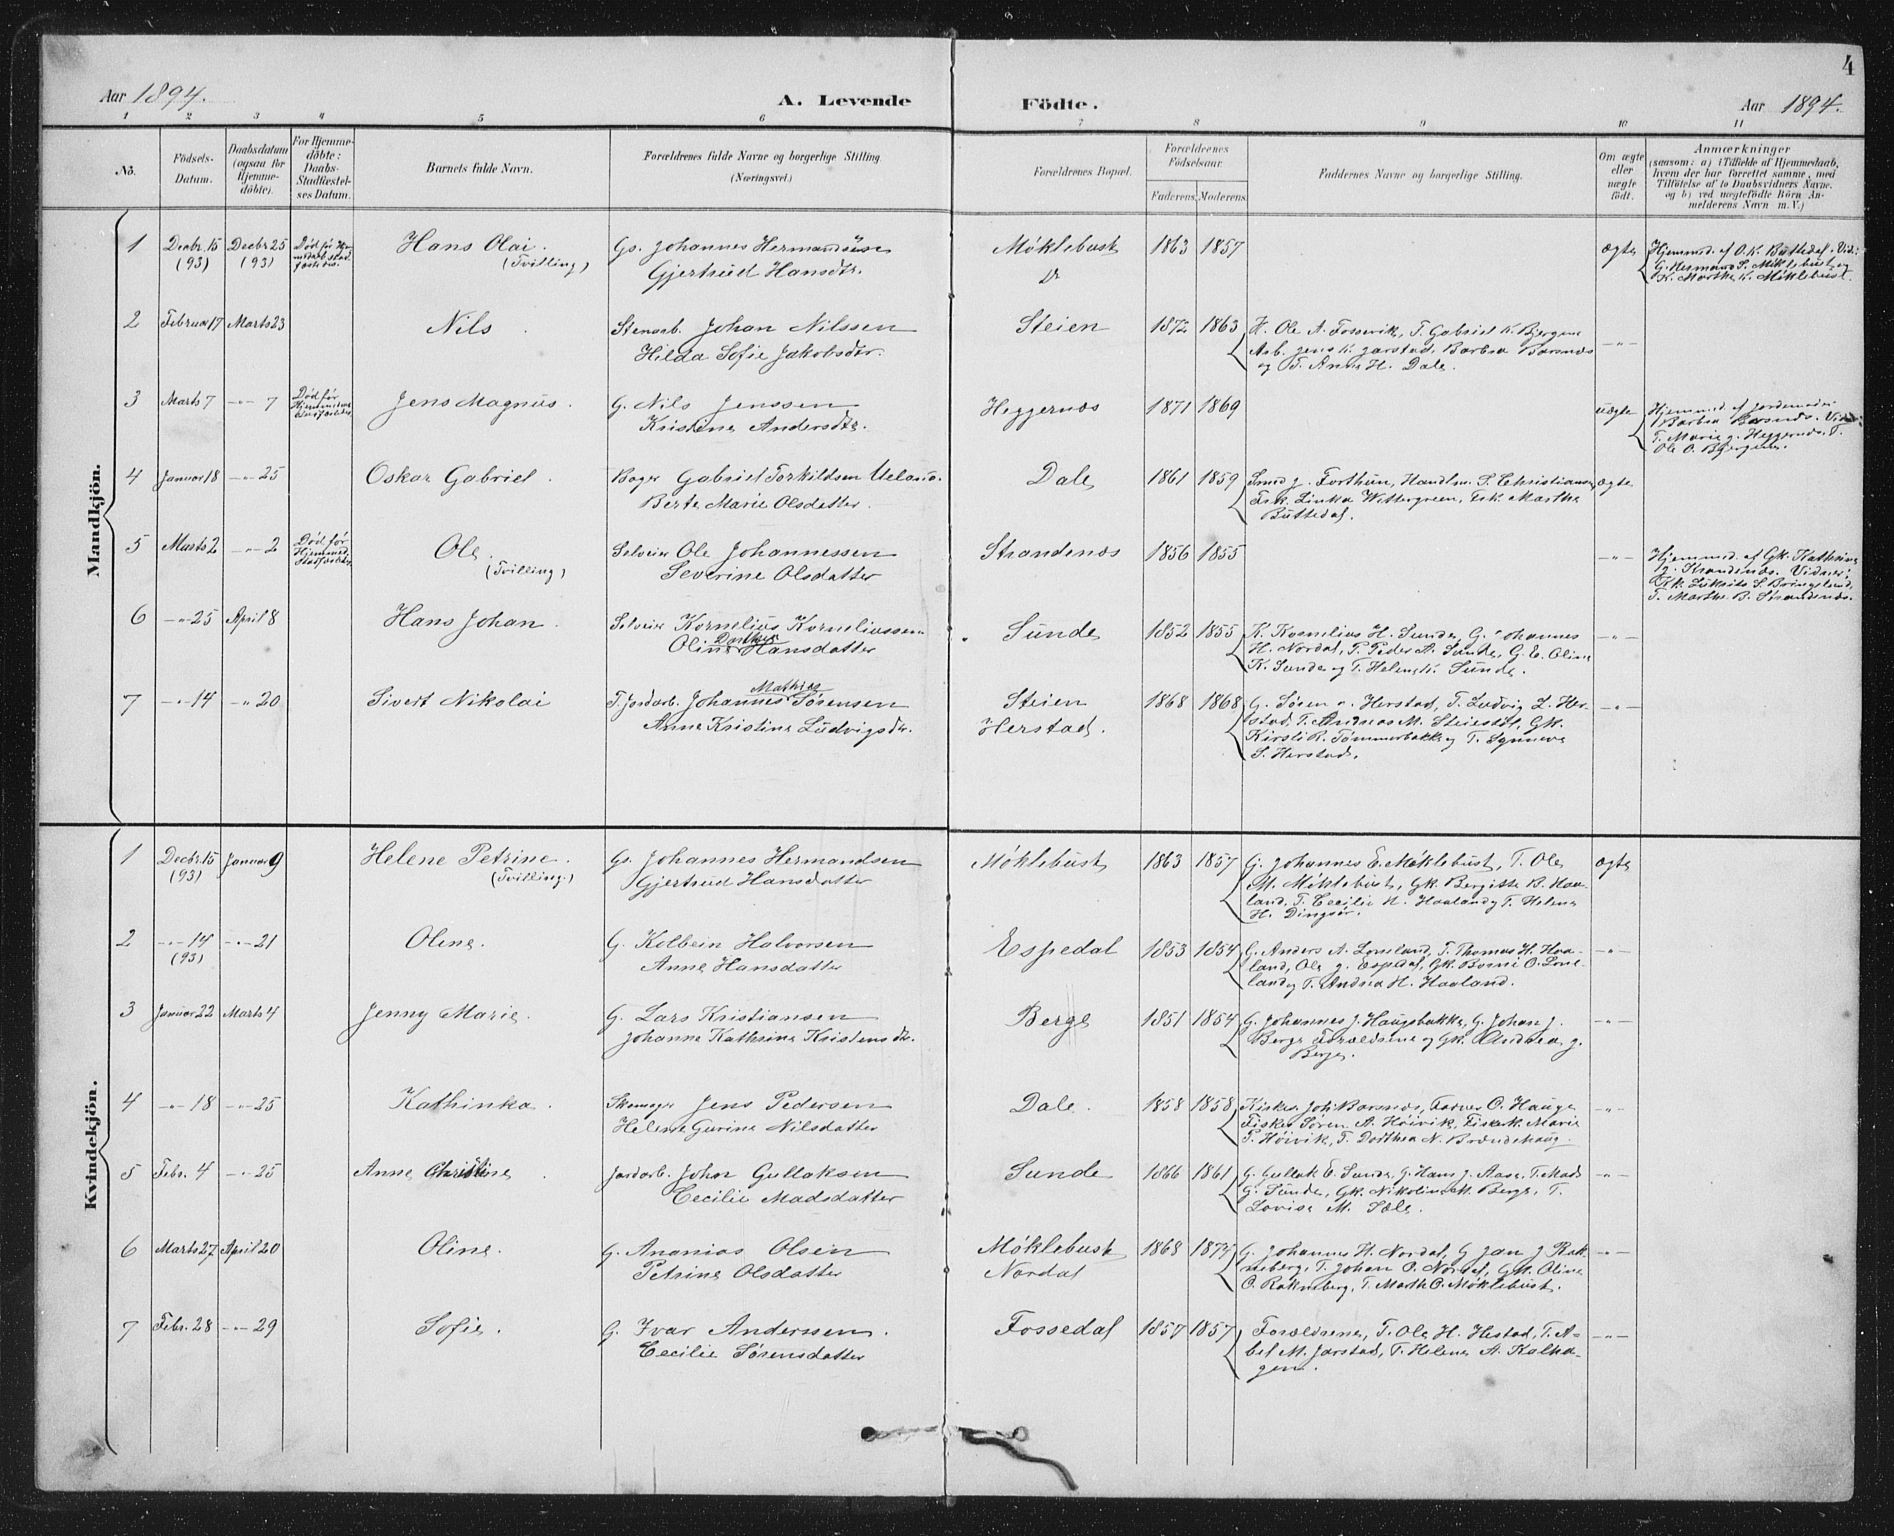 4
Aar 1894.
A. Levende
Födte.
Aar 1894.
1 2 3 4 5 6 7 8 9 10 11
No.
Födsels-
Datum.
Daabsdatum
(ogsaa for
Hjemme-
döbte).
For Hjemme-
döbte:
Daabs-
Stadfæstel-
ses Datum.
Barnets fulde Navn.
Forældrenes fulde Navne og borgerlige Stilling.
(Næringsvei.)
Forældrenes Bopæl.
Forældrenes
Födselsaar.
Faderens. Moderens.
Faddernes Navne og borgerlige Stilling.
Om ægte
eller
uægte
födt.
Anmærkninger
(saasom: a) i Tilfælde af Hjemmedaab,
hvem der har forrettet samme, med
Tilföielse af to Daabsvidners Navne,
og b) ved uægtefödte Börn An-
melderens Navn m. V.)
Mandkjön.
1 Decbr. 15 Decbr. 25 Hans Olai. Gs. Johannes Hermandsen Møklebust 1863 1857 ægte Hjemmed. af O. K. Buttedal. Vid.:
(93) (93) (Tvilling) Gjertrud Hansdtr. G. Hermand S. Møklebust og
K. Marthe K. Møklebust.
2 Februar 17 Marts 23 Nils Stenarb. Johan Nilssen Steien 1872 1863 H. Ole A. Fossevik, T. Gabriel K. Bjergene
Hilda Sofie Jakobsdtr. Arb. Jens K. Jarstad, Barbra Barsnes
og T. Anne H. Dale.
3 Marts 7 -"- 7 Død før Jens Magnus. G. Nils Jenssen Heggernæs 1871 1869 uægte Hjemmed. af Jordemoder
Kristine Andersdtr. Barbra Barsnes. Vidner
T. Marie J. Heggernes. T.
Ole O. Bjergene.
4 Januar 18 -"- 25 Oskar Gabriel. Bager Gabriel Torkildsen Ueland. Dale 1861 1859 Smed J. Forthun, Handlm. S. Christiansen, ægte
Berte Marie Olsdatter. Fsk. Linka Wettergreen, Marthe
Buttedal.
5 Marts 2 -"- 2 Død før Ole Selveier Ole Johannessen Strandenæs 1856 1855 -"- Hjemmed. af Gk. Kathrine
(Tvilling) Severine Olsdatter
T. Marthe B. Strandenæs.
6 -"- 25 April 8 Hans Johan. Selveier Kornelius Korneliussen Sunde 1852 1855 K. Kornelius H. Sunde, G. Johannes -"-
Oline Hansdatter H. Nordal, P. Peder A. Sunde, G. E. Oline
K. Sunde og T. Helene K. Sunde.
7 -"- 14 -"- 20 Sivert Nikolai T. Jordarb. Johannes Mathias Sørensen Steien 1868 1868 G. Søren Herstad, T. Ludvig L. Her- -"-
Anne Kristine Ludvigsdtr. Herstad. stad, T. Andreas M. Steiestøl, Gk.
Kirsti R. Tømmerbakke og T. Synneva
S. Herstad.
Kvindekjön.
1 Decbr. 15 Januar 9 Helene Petrine. Gs. Johannes Hermandsen Møklebust 1863 1857 G. Johannes E. Møklebust, T. Ole ægte
(93) (Tvilling.) Gjertrud Hansdatter M. Møklebust, Gk. Bergitte B. Haa-
land, T. Cecilie N. Haaland og T. Helene
H. Dingsør.
2 -"- 14 -"- 21 Oline. G. Kolbein Halvorsen Espedal 1853 1854 G. Anders A. Loneland, T. Thomas H. Haa- -"-
(93) Anne Hansdatter land, Ole J. Espedal, Gk. Borni O. Lone-
land og T. Andrea H. Haaland.
3 Januar 22 Marts 4 Jenny Marie. G. Lars Kristiansen Berge 1851 1854 G. Johannes J. Haugsbakke, G. Johan J. -"-
Johanne Kathrine Kristensdtr. Berge Forældrene og Gk. Andrea J.
Berge.
4 -"- 18 -"- 25 Kathinka. Skomager Jens Pedersen Dale. 1858 1858 Kirkes. Joh. Barsnes, Farver O. Hauge, -"-
Helene Gurine Nilsdatter Fisker Søren A. Høivik, Fiskerk. Marie
P. Høivik, T. Dorthea N. Brændehaug.
5 Febr. 4 -"- 25 Anne Christine. Jordarb. Johan Gullaksen Sunde 1866 1861 G. Gullak E. Sunde, G. Hans J. Aase, T. Mads -"-
Cecilie Madsdatter G. Sunde, Gk. Nikoline M. Berge, T.
Lovise M. Sæle.
6 Marts 27 April 20 Oline. G. Ananias Olsen Møklebust 1868 1874 G. Johannes H. Nordal, G. Jan J. Rak- -"-
Petrine Olsdatter Nordal neberg, T. Johan O. Nordal, Gk. Oline
O. Rakneberg, T. Marth. O. Møklebust.
7 Febr. 28 -"- 29 Sofie. G. Ivar Anderssen. Fossedal 1857 1857 Forældrene, T. Ole H. Hestad, T. A- -"-
Cecilie Sørensdatter bel M. Jarstad, T. Helene A. Kalha-
gen.